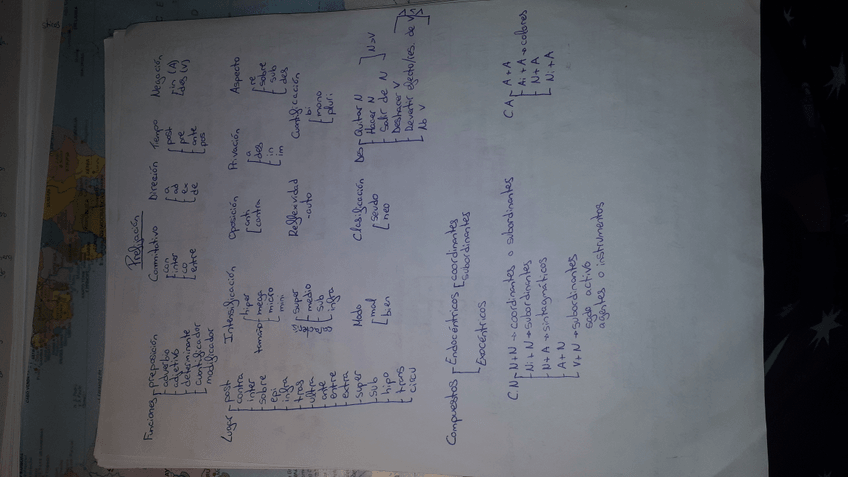 Prefijación
Funciones
preposición
- adverbio
- adjetivo
- determinante
- cuantificador
modificador
Conmutativo
con
inter
co
entre
Dirección
a
ad
ex
de
Tiempo
post
pre
ante
pos
Negación
in (A)
des (V)
Lugar
post
contra
inter
sobre
epi
infra
tras
ultra
ante
entre
extra
super
sub
hipo
trans
circu
Intensificación
tamaño
hiper
mega
micro
mini
super
medio
sub
infra
Oposición
anti
contra
Reflexividad
- auto
Privación
a
des
in
im
Cuantificación
bi
mono
pluri
Aspecto
re
sobre
sub
des
Modo
mal
bien
Clasificación
seudo
neo
Des
Quitar N
Hacer N
Salir de N
] N→V
Deshacer V
Revertir efecto/res. de V
No V
Compuestos
Endocéntricos
coordinantes
subordinantes
Exocéntricos
C.N
N+N → coordinantes o subordinantes
Ni+N → subordinantes
N+A → sintagmáticos
A+N
V+N → subordinantes
agentes o instrumentos
C A
A+A
Ai+A → colores
N+A
Ni+A